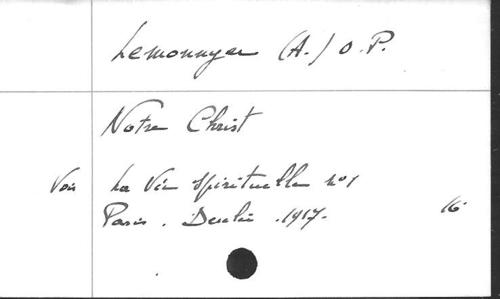 Lemonnyer (A.) O.P.
Notre Christ
Voir La Vie Spirituelle no 1
Paris. Desclée. 1947. 16